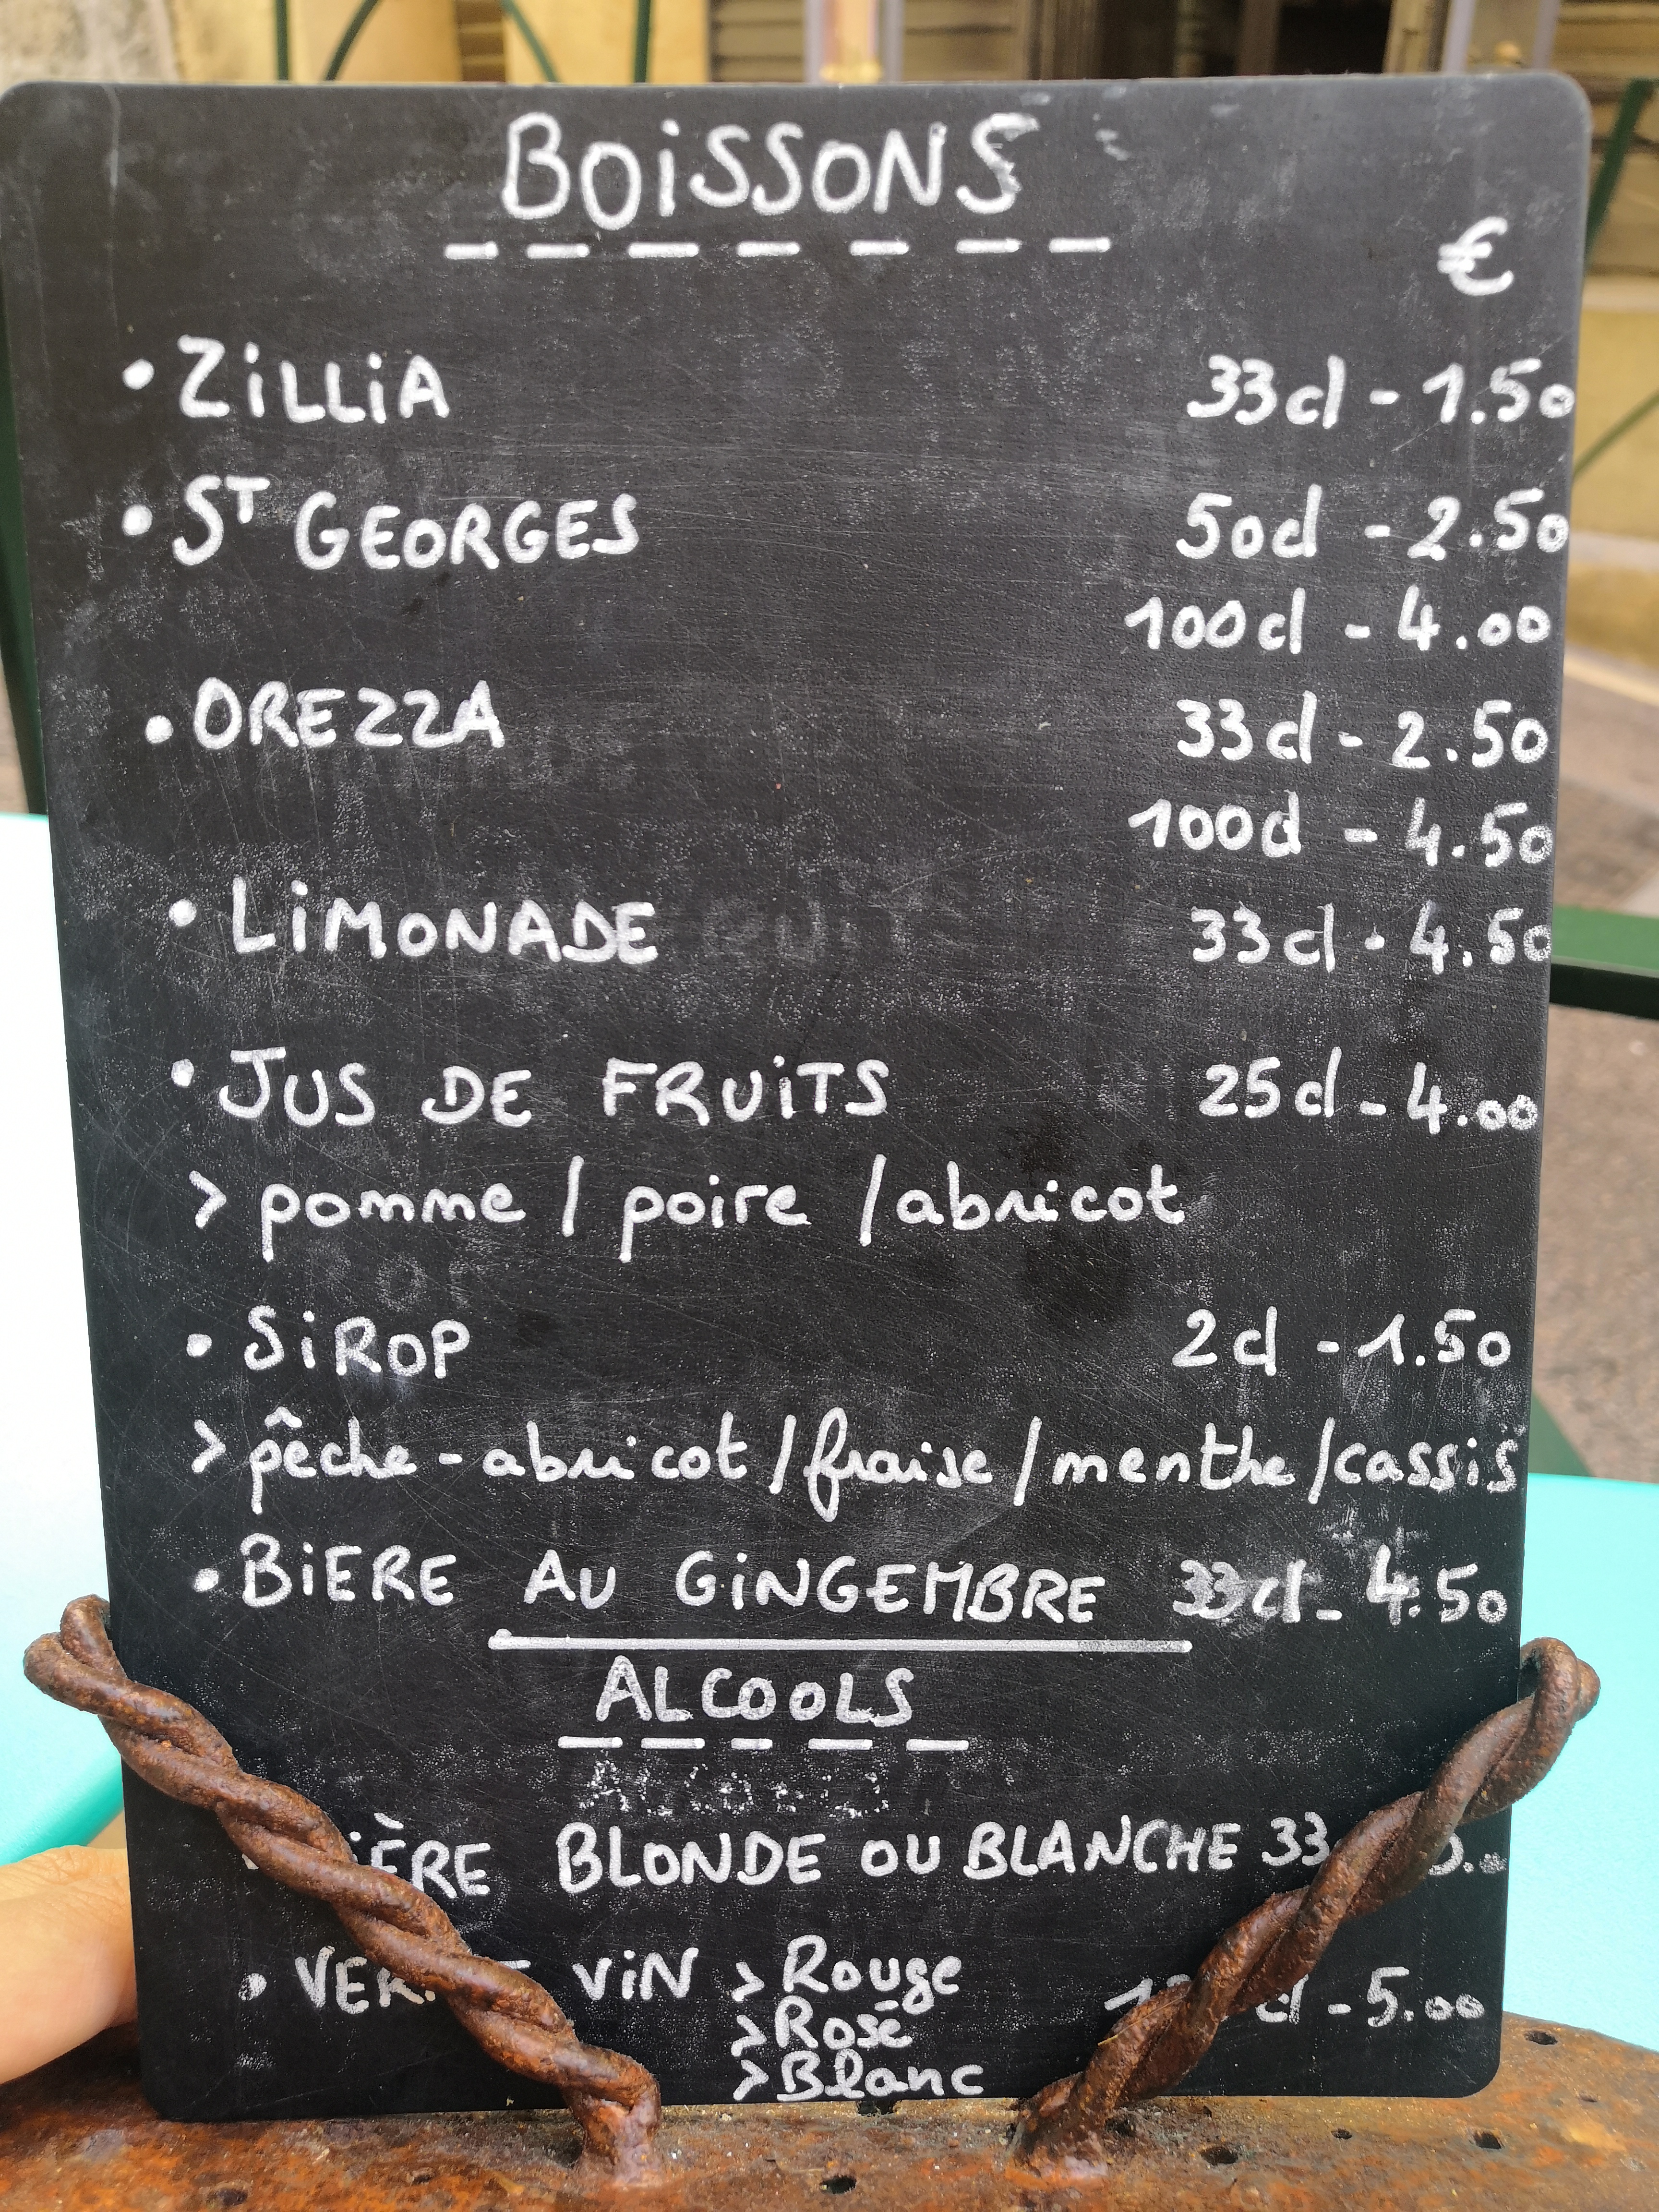 BOiSSONS
€
• ZiLLiA 33cl - 1.50
• ST GEORGES 50cl - 2.50
100cl - 4.00
• OREZZA 33cl - 2.50
100cl - 4.50
• LiMONADE 33cl - 4.50
• JUS DE FRUiTS 25cl - 4.00
> pomme / poire / abricot
• SiROP 2cl - 1.50
> pêche-abricot / fraise / menthe / cassis
• BiERE AU GiNGEMBRE 33cl - 4.50
ALCOOLS
BLONDE OU BLANCHE 33
• ViN > Rouge - 5.00
> Rosé
> Blanc